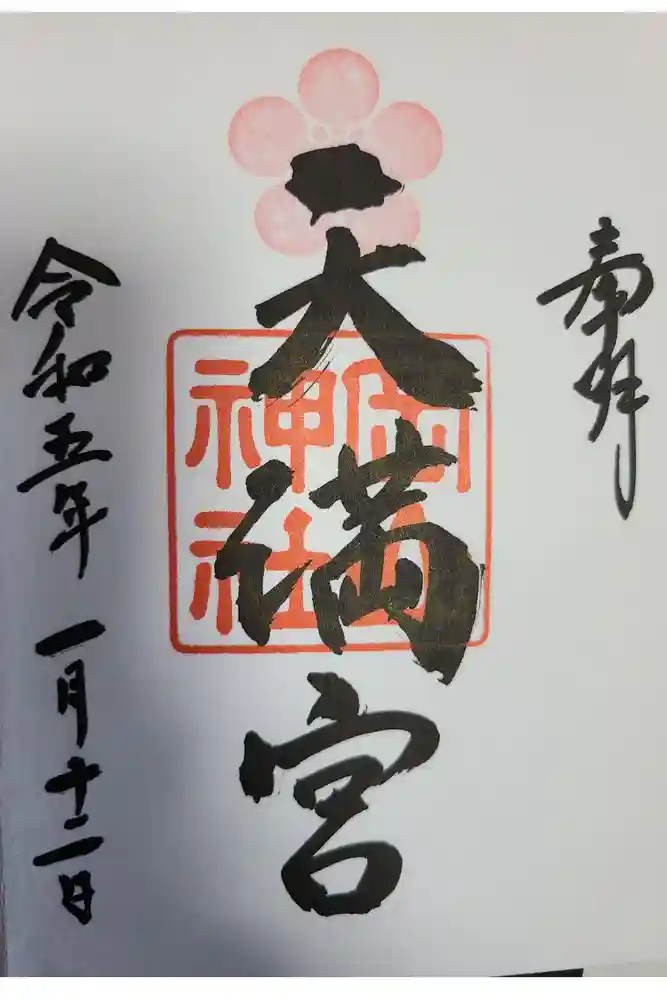 奉拝
天満宮
神社
令和五年 一月十二日